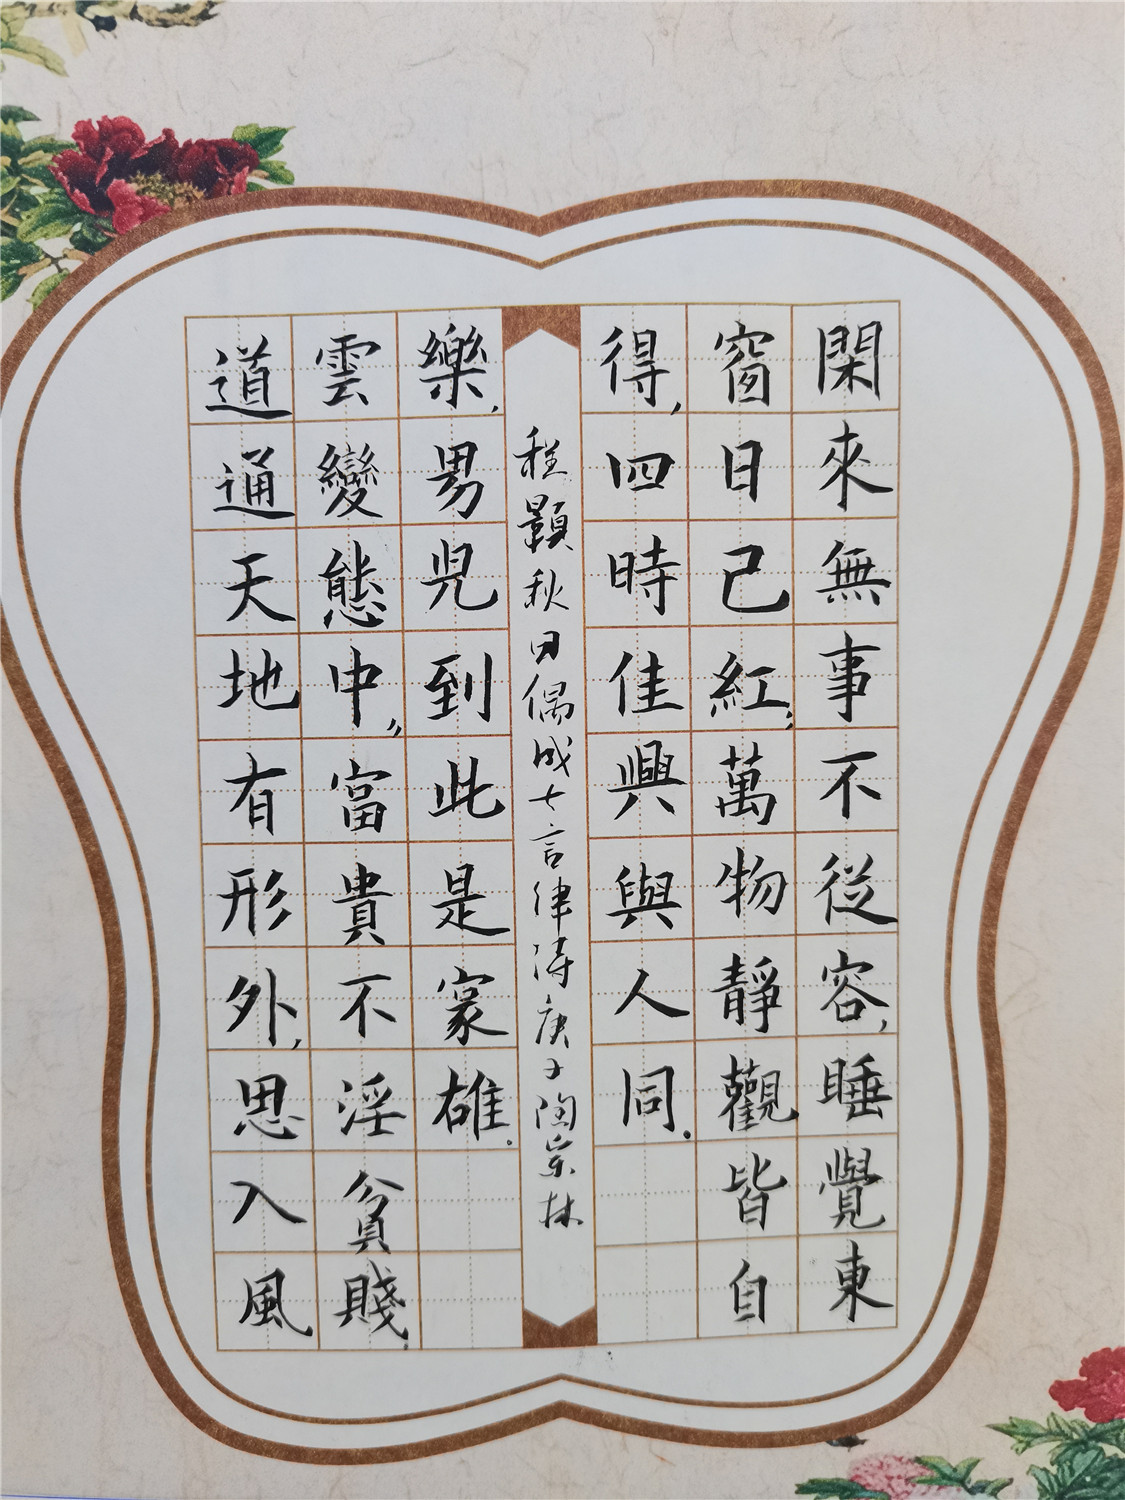 閑來無事不從容,睡覺東
窗日己紅;萬物靜觀皆自
得,四時佳興與人同.
道通天地有形外,思入風
雲變態中,,富貴不淫貧賤,
樂,男兒到此是豪雄。
程顥秋日偶成七言律诗庚子陶宗林